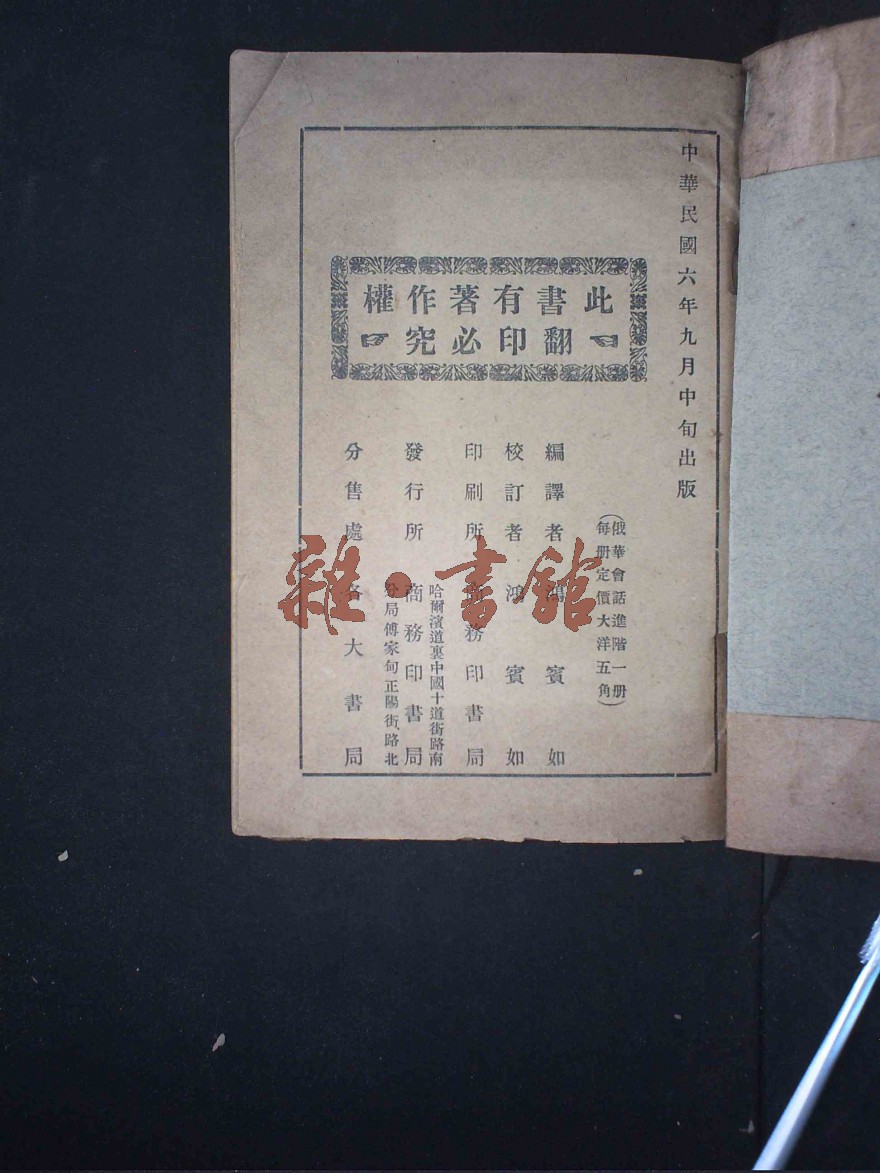 中華民國六年九月中旬出版
此書有著作權
翻印必究
(俄華會話進階一册
每册定價大洋五角)
編譯者 鴻賓如
校訂者 鴻賓如
印刷所 商務印書局
哈爾濱道裏中國十道街路南
發行所 商務印書局
分局傅家甸正陽街路北
分售處 各大書局
雜·書館